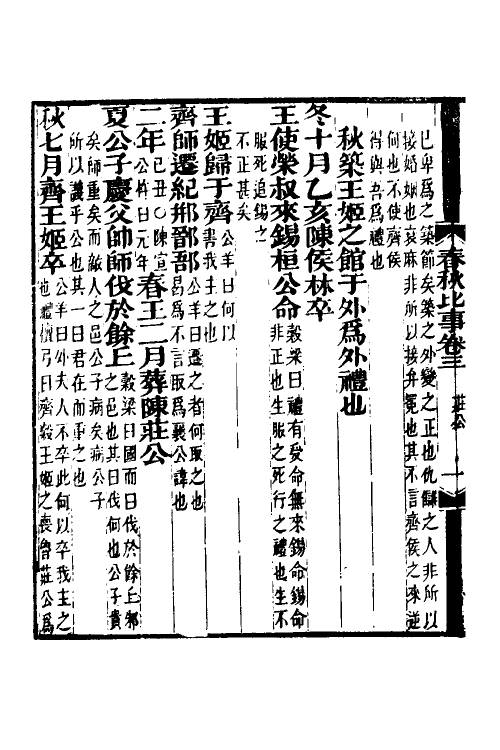 春秋比事卷三 莊公 一
已卑爲之築節矣築之外變之正也仇讎之人非所以
接婚姻也衰麻非所以接弁冕也其不言齊侯之來逆
何也不使齊侯
得與吾爲禮也
秋築王姬之館于外爲外禮也
冬十月乙亥陳侯林卒
王使榮叔來錫桓公命
穀梁曰禮有受命無來錫命錫命
非正也生服之死行之禮也生不
服死追錫之
不正甚矣
王姬歸于齊
公羊曰何以
書我主之也
齊師遷紀郱鄑郚
公羊曰遷之者何取之也
曷爲不言取爲襄公諱也
二年
已丑〇陳宣
公杵臼元年
春王二月葬陳莊公
夏公子慶父帥師伐於餘丘
穀梁曰國而曰伐於餘丘邾
之邑也其曰伐何也公子貴
矣師重矣而敵人之邑公子病矣病公子
所以譏乎公也其一曰君在而重之也
秋七月齊王姬卒
公羊曰外夫人不卒此何以卒我主之
也檀弓曰齊穀王姬之喪魯莊公爲